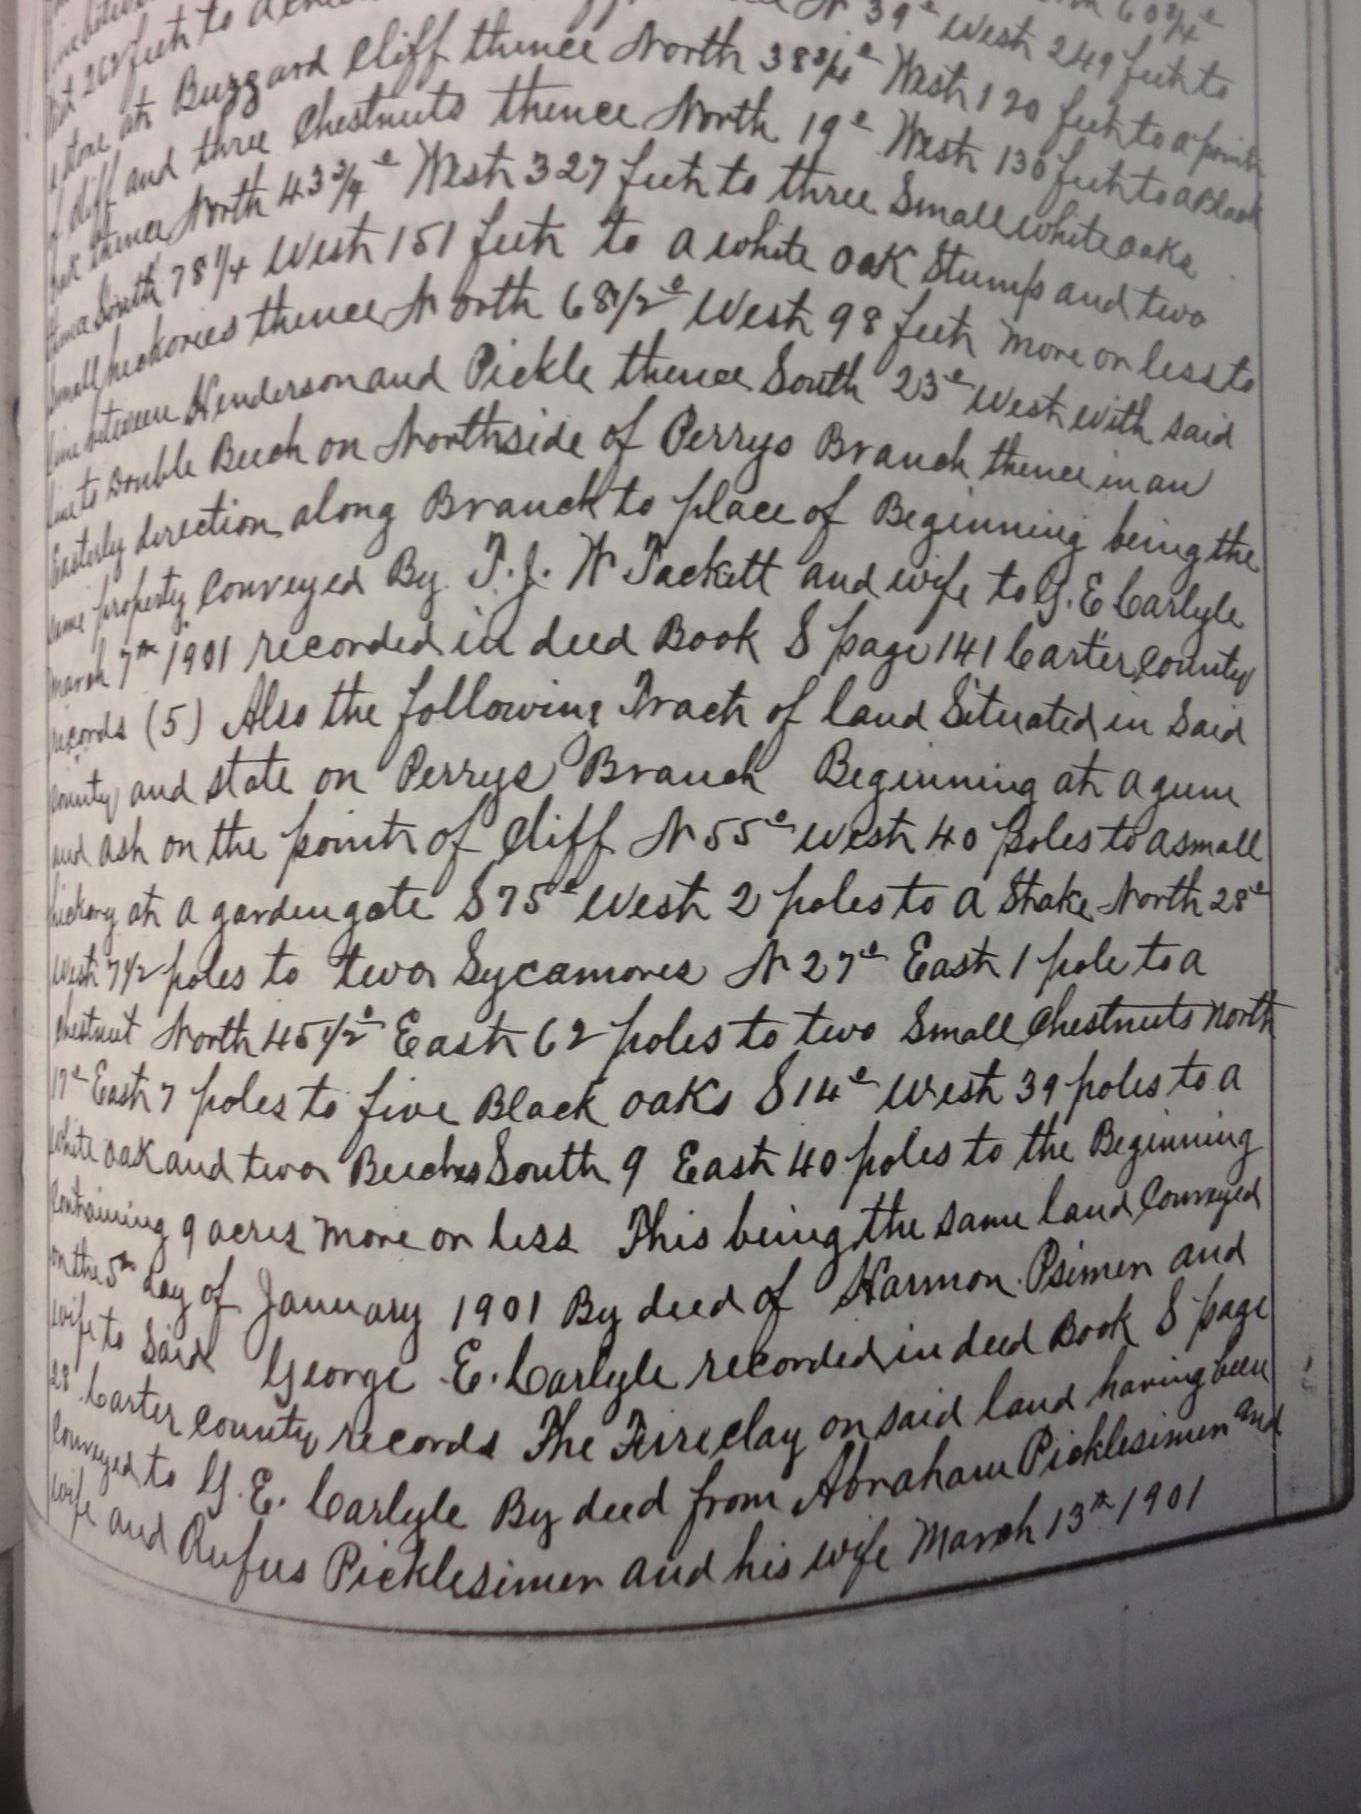 60 3/4 e
262 feet to N 39 e West 249 feet to
stone at Buzzard Cliff thence North 38 3/4 e West 120 feet to a point
of cliff and three Chestnuts thence North 19 e West 130 feet to a Black
oak thence North 43 3/4 e West 327 feet to three Small white oaks
thence South 78 1/4 West 151 feet to a white oak Stump and two
Small hickories thence North 68 1/2 e West 98 feet more or less to
line between Henderson and Pickle thence South 23 e West with said
line to Double Beech on Northside of Perrys Branch thence in an
Easterly direction along Branch to place of Beginning being the
same property Conveyed By T. J. W Tackett and wife to G. E Carlyle
March 7th 1901 recorded in deed Book S page 141 Carter County
records (5) Also the following Tract of land Situated in Said
County and state on Perrys Branch Beginning at a gum
and ash on the point of Cliff N 55 e West 40 poles to a small
hickory at a garden gate S 75 e West 2 poles to a Stake North 28 e
West 7 1/2 poles to two Sycamores N 27 e East 1 pole to a
Chestnut North 45 1/2 e East 62 poles to two Small Chestnuts North
17 e East 7 poles to five Black oaks S 14 e West 39 poles to a
white oak and two Beeches South 9 East 40 poles to the Beginning
Containing 9 acres more or less This being the same land Conveyed
on the 5th day of January 1901 By deed of Harmon Psimer and
wife to Said George E. Carlyle recorded in deed Book S page
28 Carter County records The Fireclay on said land having been
Conveyed to G. E. Carlyle By deed from Abraham Picklesimer and
wife and Rufus Picklesimer and his wife March 13th 1901